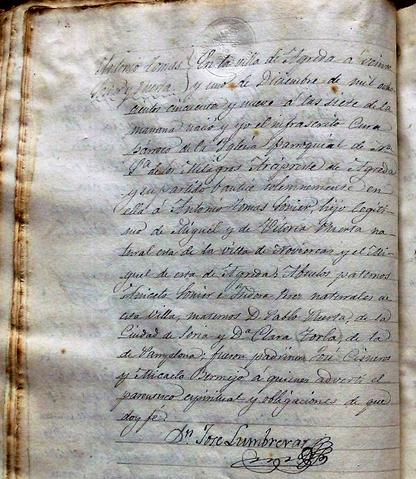 Antonio Tomas
y Huerta
En la villa de Agreda á veinte
y uno de Diciembre de mil ocho
cientos cincuenta y nueve á las siete de la
mañana nació y yo el infrascrito Cura
párroco de la Iglesia parroquial de Ntra
Sra de los Milagros Arcipreste de Agreda
y su partido bauticé solemnemente en
ella á Antonio Tomas hijo legíti
mo de Miguel y de Vitoria Huerta na
tural esta de la villa de Noviercas y el Mi
guel de esta de Agreda; Abuelos paternos
Aniceto é Isidora naturales de
esta Villa, maternos D. Pablo Huerta de la
Ciudad de Soria y Dª Clara Forla de la
de Pamplona; fueron padrinos José Cisneros
y Micaela Bermejo á quienes advertí el
parentesco espiritual y obligaciones de que
doy fe.
Dn Jose Lumbreras